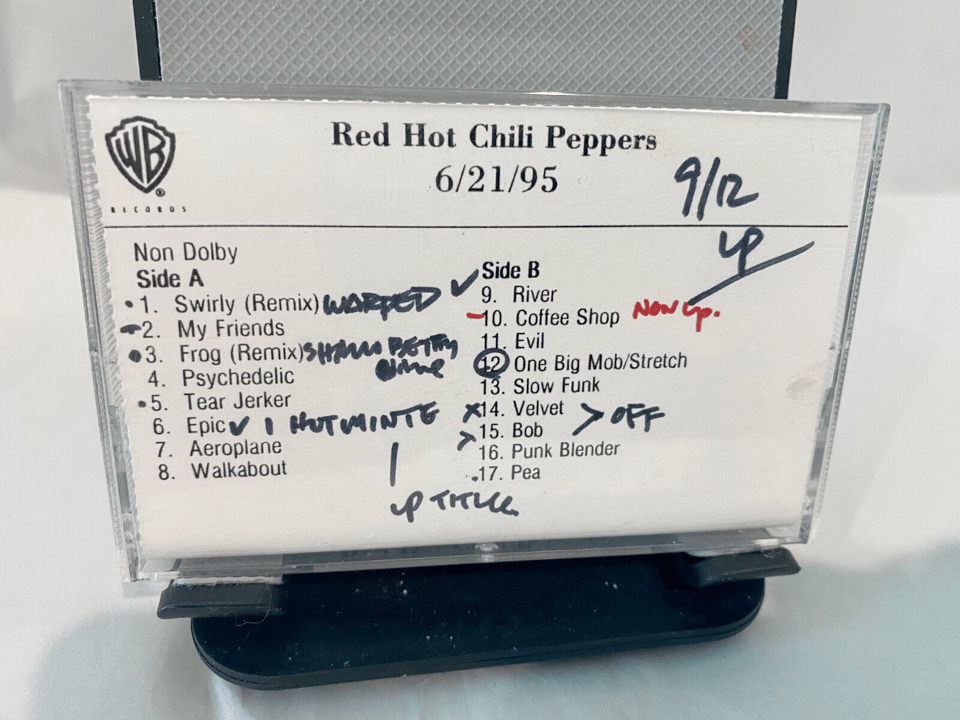 WB
®
RECORDS
Red Hot Chili Peppers
6/21/95
9/12
LP
Non Dolby
Side A
1. Swirly (Remix) WARPED
2. My Friends
3. Frog (Remix)
4. Psychedelic
5. Tear Jerker
6. Epic ✓ 1 HOT MINTE
7. Aeroplane
8. Walkabout
LP TITLE
Side B
9. River
10. Coffee Shop NON LP.
11. Evil
12 One Big Mob/Stretch
13. Slow Funk
14. Velvet > OFF
15. Bob
16. Punk Blender
17. Pea